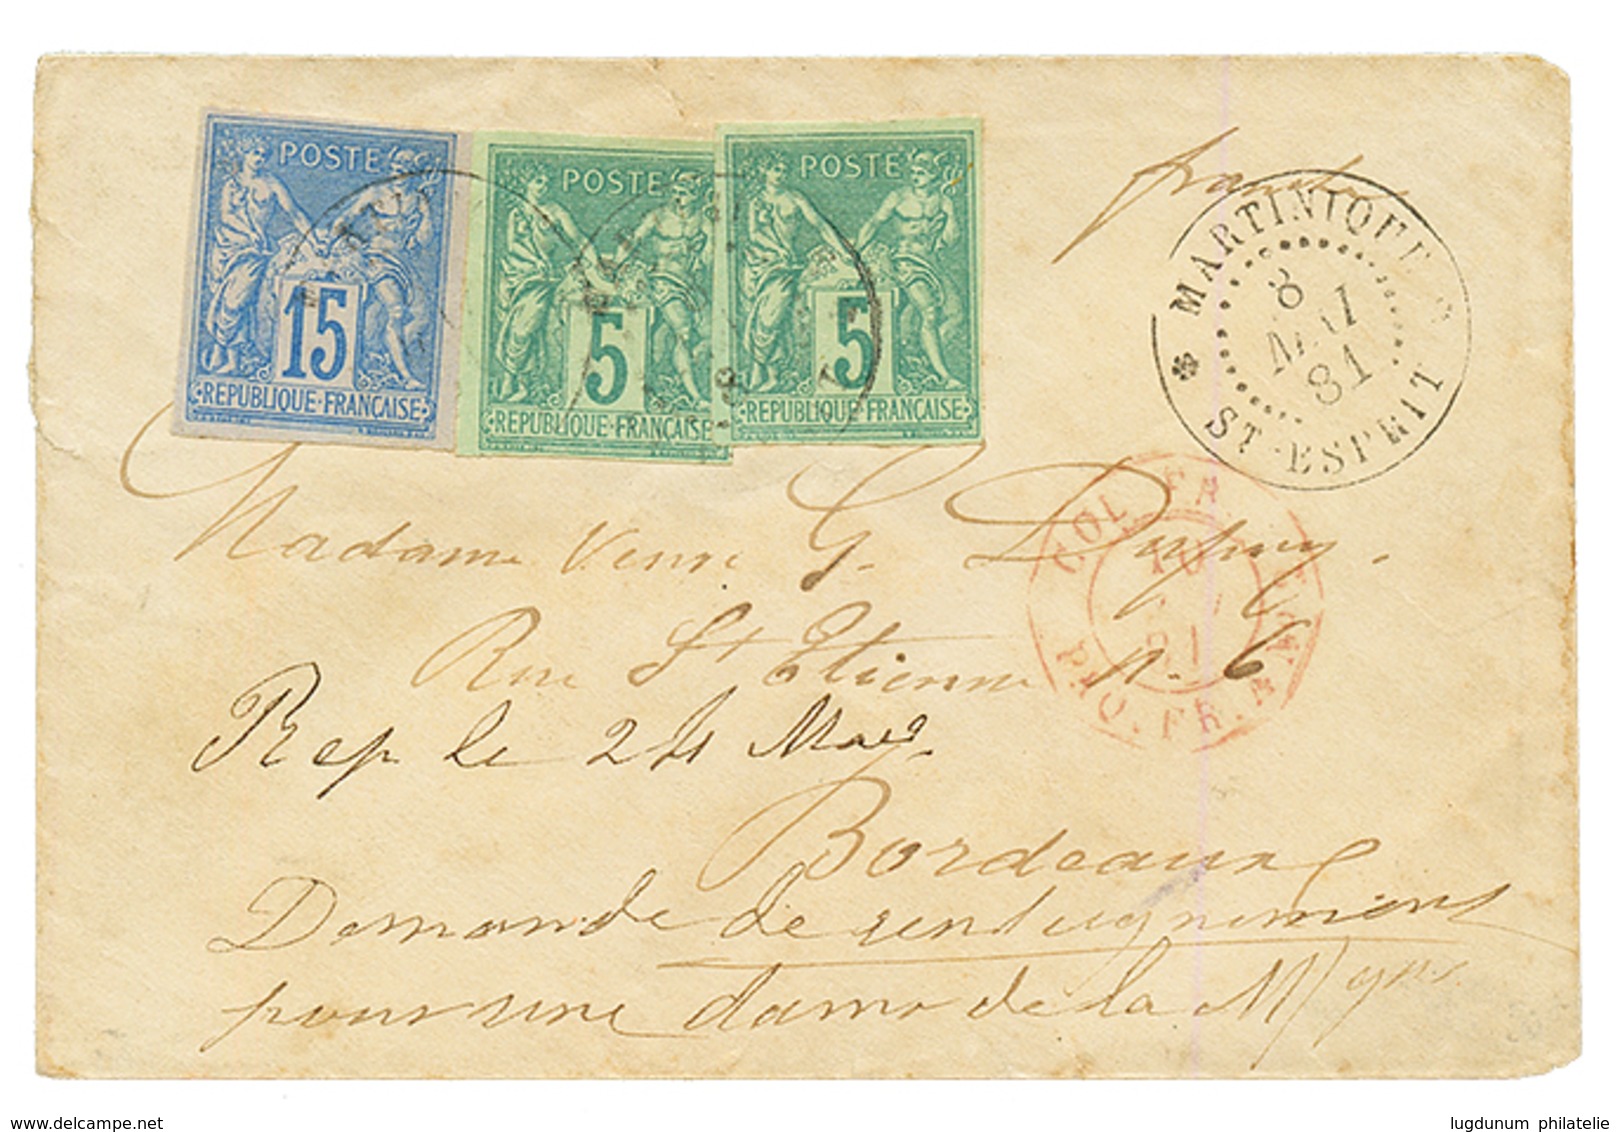 POSTE
15
REPUBLIQUE · FRANÇAISE
POSTE
5
REPUBLIQUE · FRANÇAISE
POSTE
5
REPUBLIQUE · FRANÇAISE
MARTINIQUE
8
MAI
81
ST-ESPRIT
COL. FR
10
PAQ. FR.
Madame Veuve G. Dupuy.
Rue St Etienne n. 6
Rep le 24 Mai
Bordeaux
Demande de renseignements
pour une dame de la
delcampe.net
lugdunum philatelie